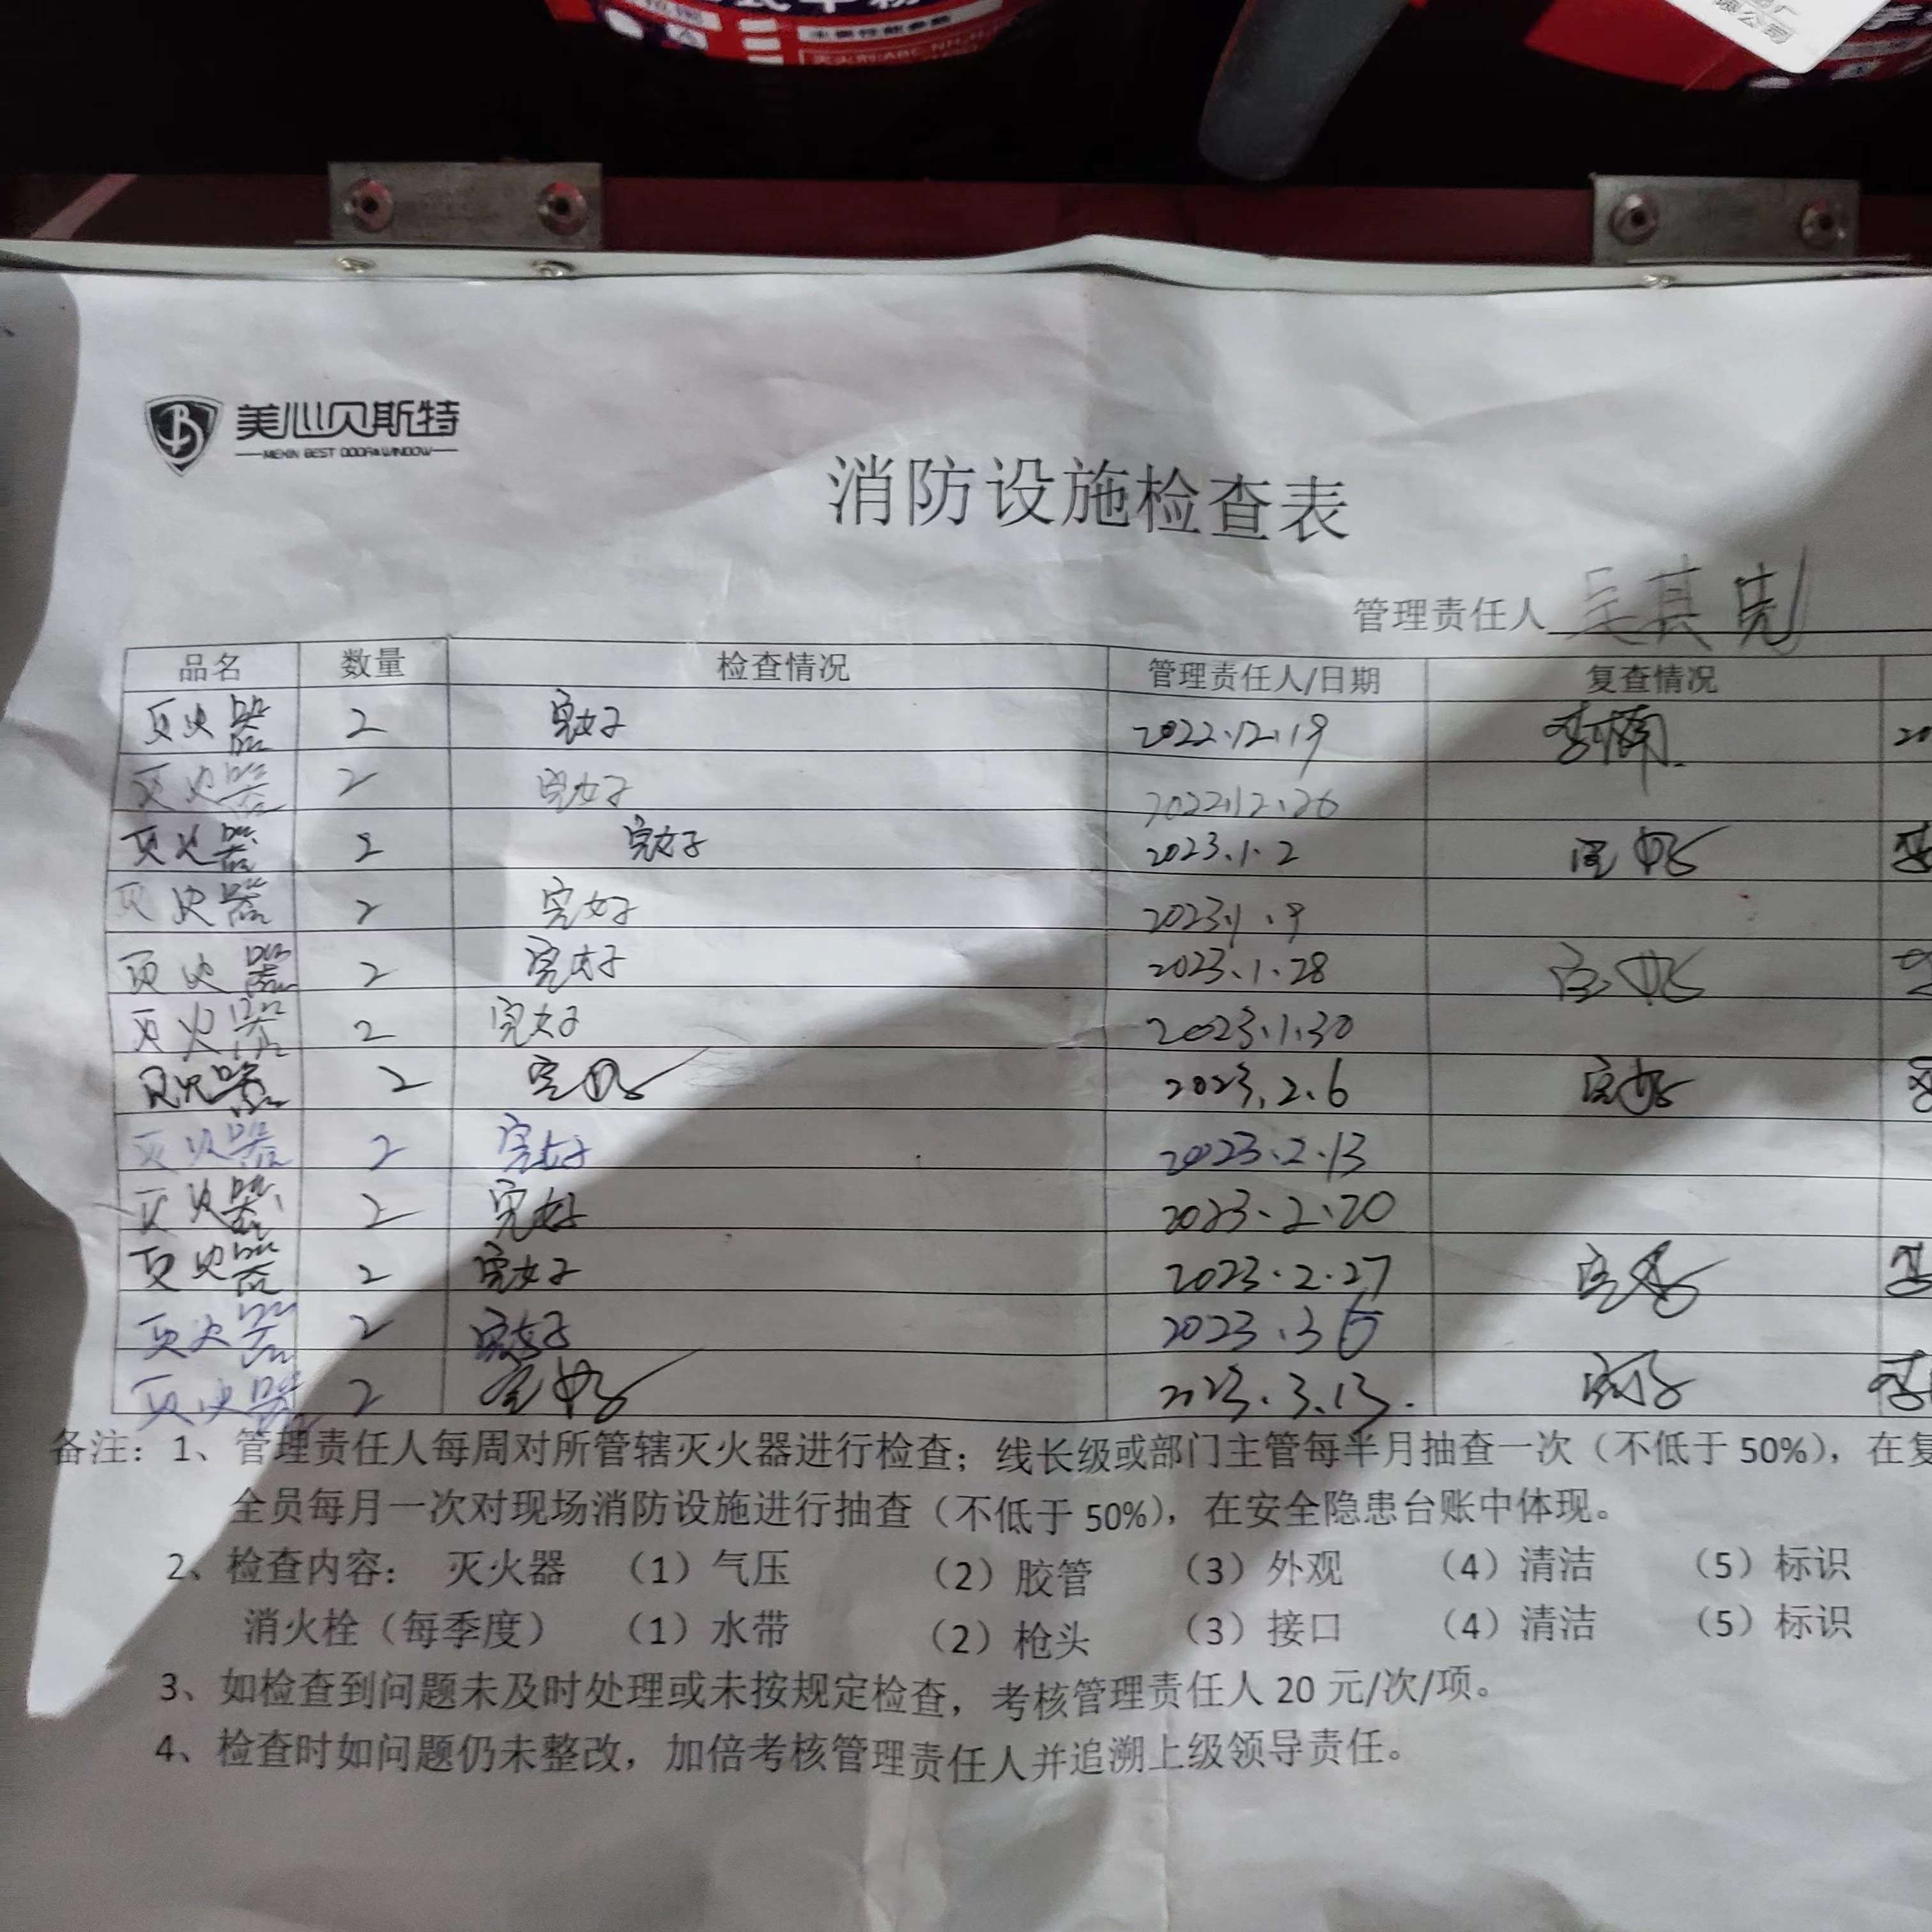 美心贝斯特
MEXIN BEST DOOR&WINDOW
消防设施检查表
管理责任人 吴其先
品名 数量 检查情况 管理责任人/日期 复查情况
灭火器 2 完好 2022.12.19 李楠
灭火器 2 完好 2022.12.26
灭火器 2 完好 2023.1.2 完好
灭火器 2 完好 2023.1.9
灭火器 2 完好 2023.1.28 完好
灭火器 2 完好 2023.1.30
灭火器 2 完好 2023.2.6 完好
灭火器 2 完好 2023.2.13
灭火器 2 完好 2023.2.20
灭火器 2 完好 2023.2.27 完好
灭火器 2 完好 2023.3.6
灭火器 2 完好 2023.3.13. 完好
备注：1、管理责任人每周对所管辖灭火器进行检查；线长级或部门主管每半月抽查一次（不低于 50%），在复
全员每月一次对现场消防设施进行抽查（不低于 50%），在安全隐患台账中体现。
2、检查内容： 灭火器 （1）气压 （2）胶管 （3）外观 （4）清洁 （5）标识
消火栓（每季度） （1）水带 （2）枪头 （3）接口 （4）清洁 （5）标识
3、如检查到问题未及时处理或未按规定检查，考核管理责任人 20 元/次/项。
4、检查时如问题仍未整改，加倍考核管理责任人并追溯上级领导责任。